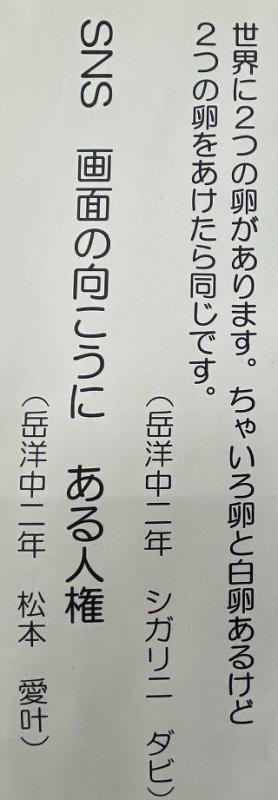 世界に2つの卵があります。ちゃいろ卵と白卵あるけど
2つの卵をあけたら同じです。
（岳洋中二年　シガリニ　ダビ）
SNS　画面の向こうに　ある人権
（岳洋中二年　松本　愛叶）